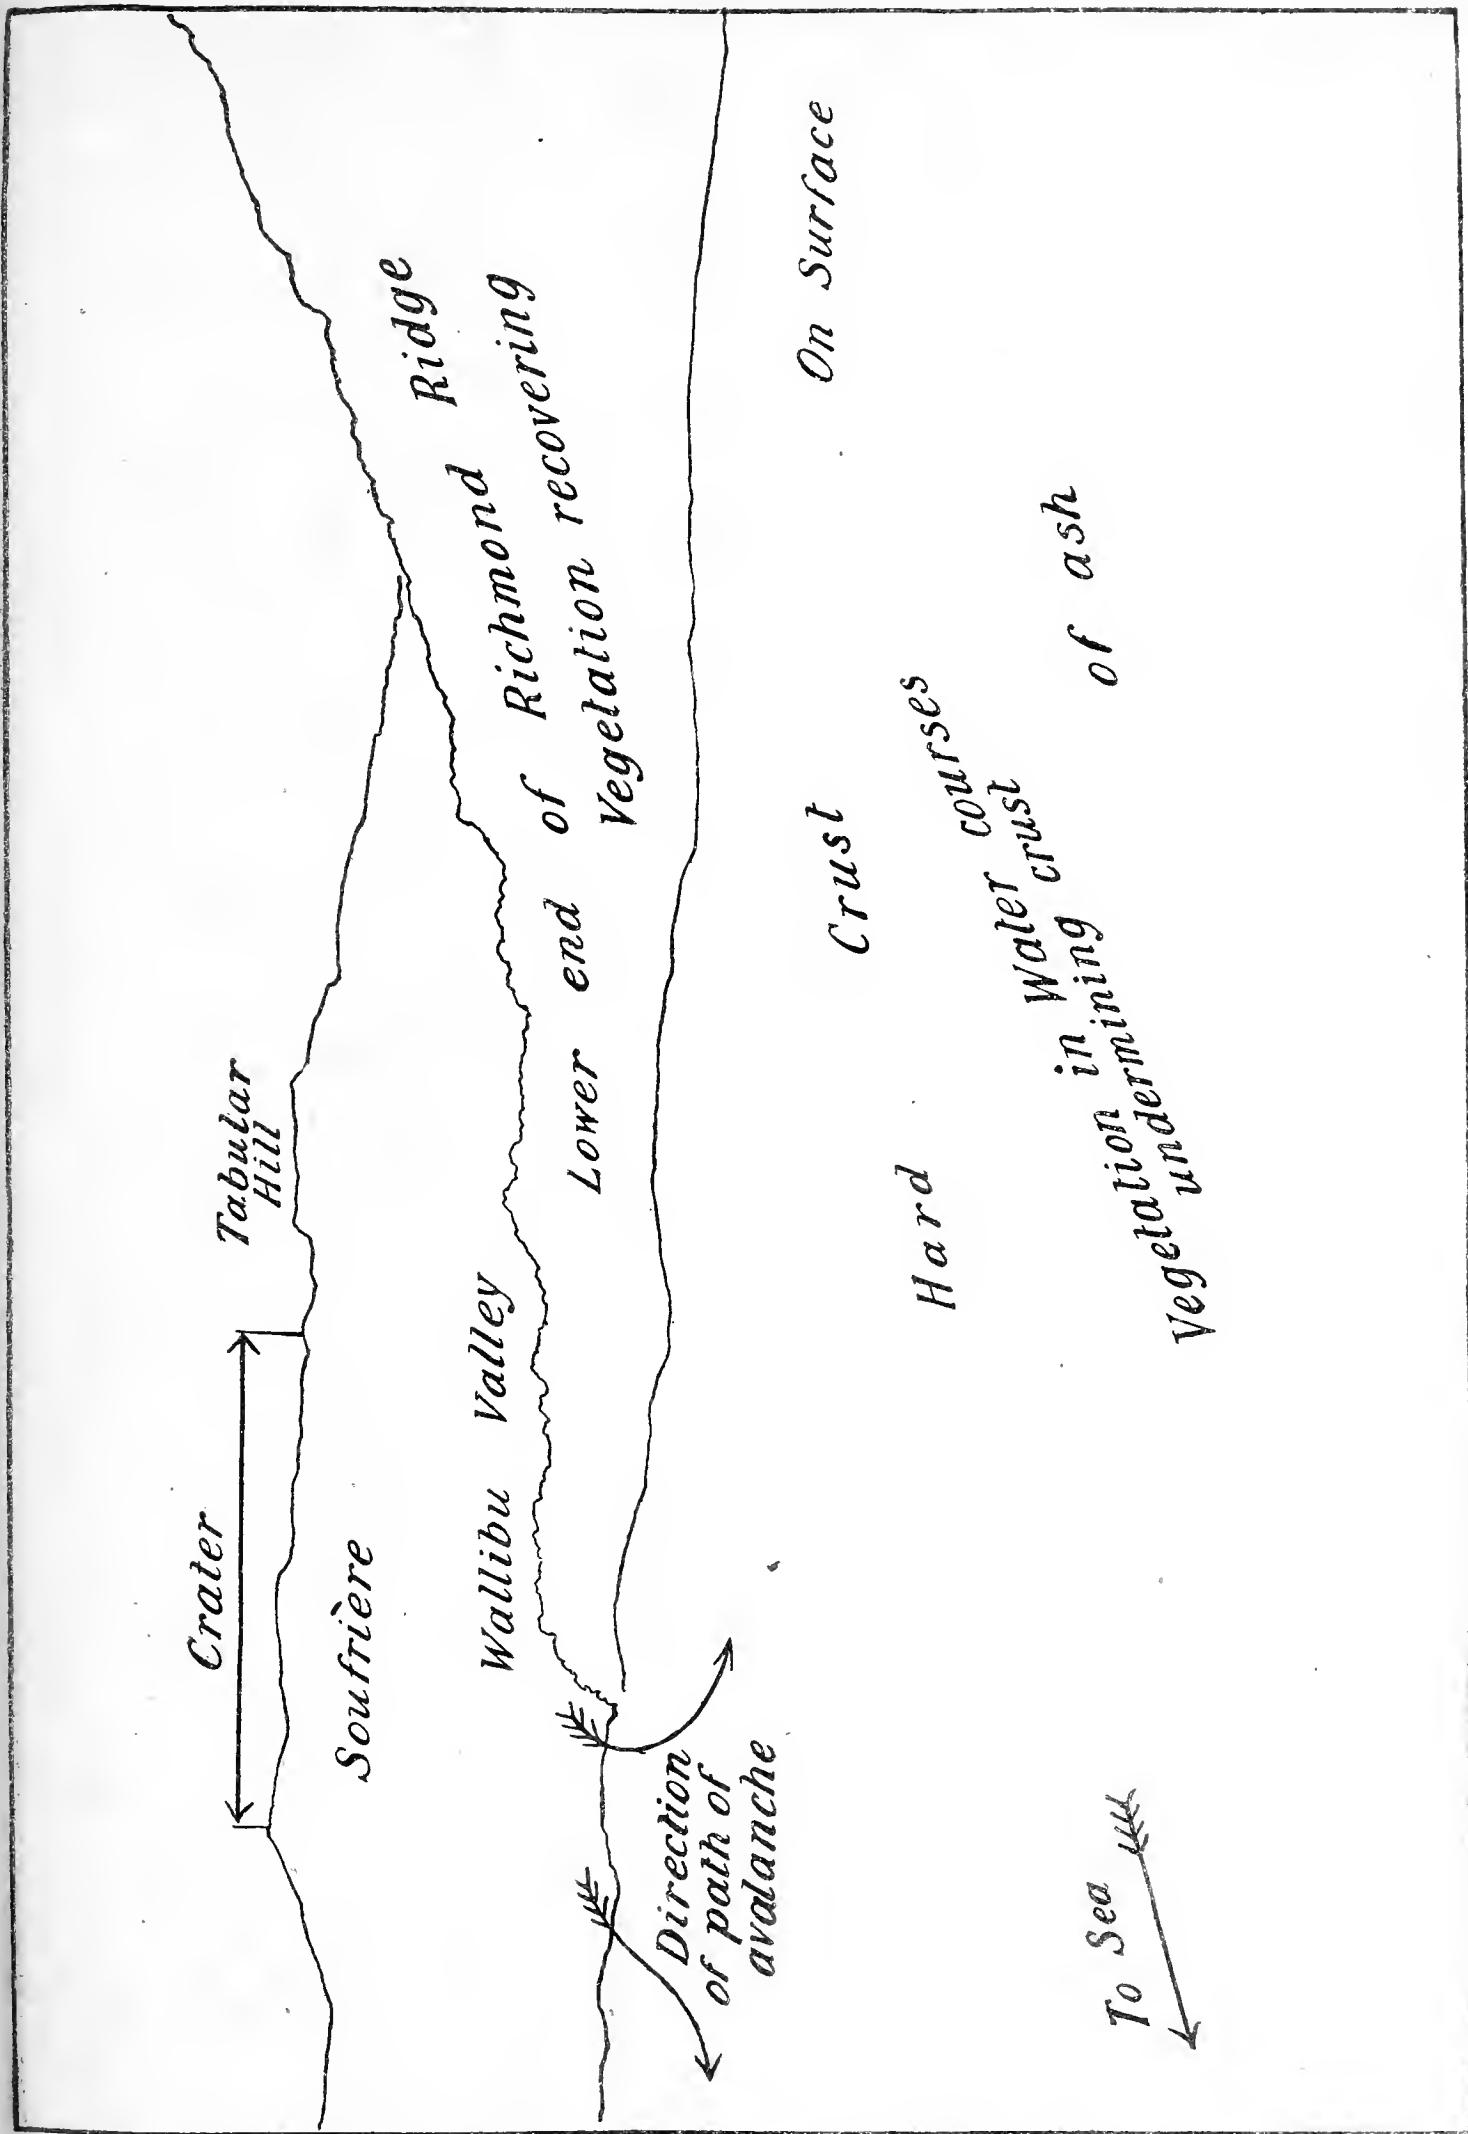 Crater
Tabular
Hill
Soufrière
Wallibu Valley
Lower end of Richmond Ridge
Vegetation recovering
Direction
of path of
avalanche
Hard Crust On Surface
Vegetation in Water courses
undermining crust of ash
To Sea